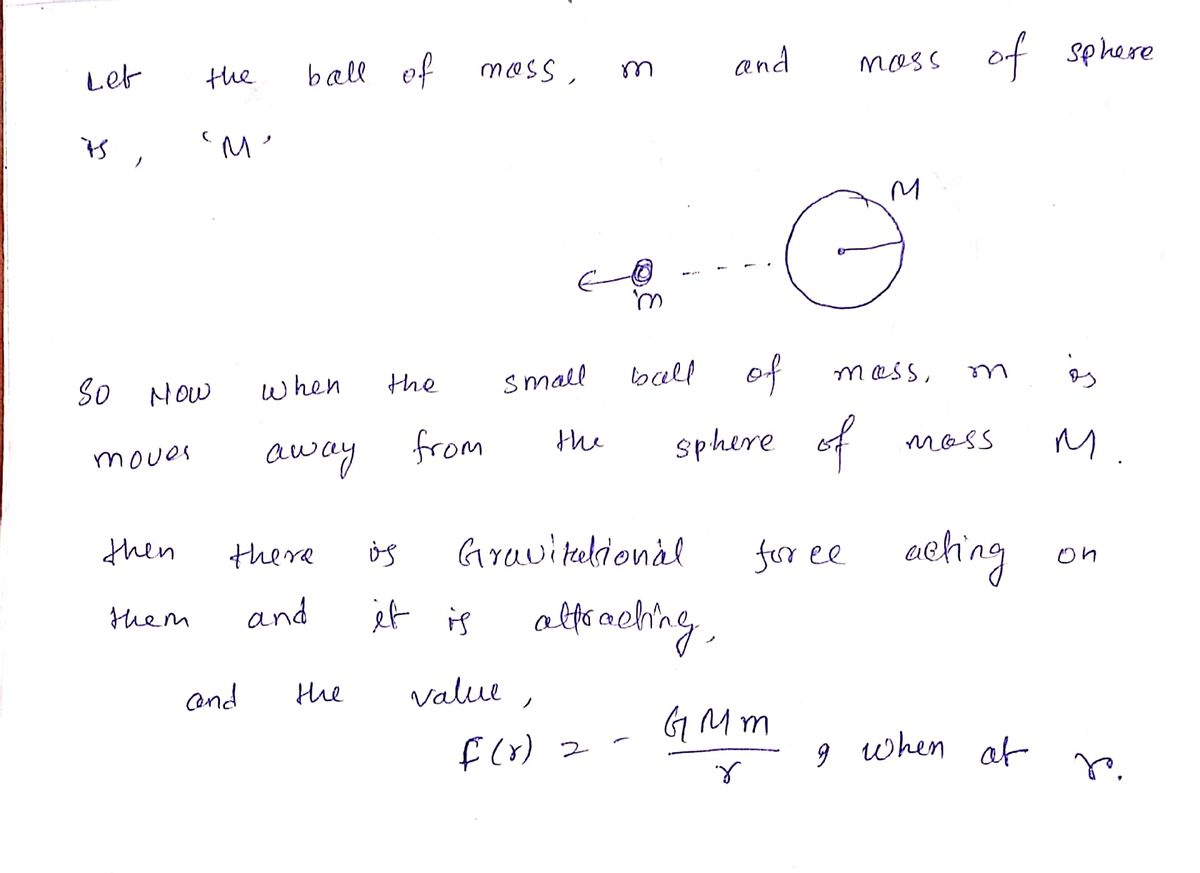 Let the ball of mass, m and mass of sphere
is, 'M'
M
m
So Now when the small ball of mass, m is
moves away from the sphere of mass M.
then there is Gravitational force acting on
them and it is attracting,
and the value,
F(r) = - GMm/r , when at r.